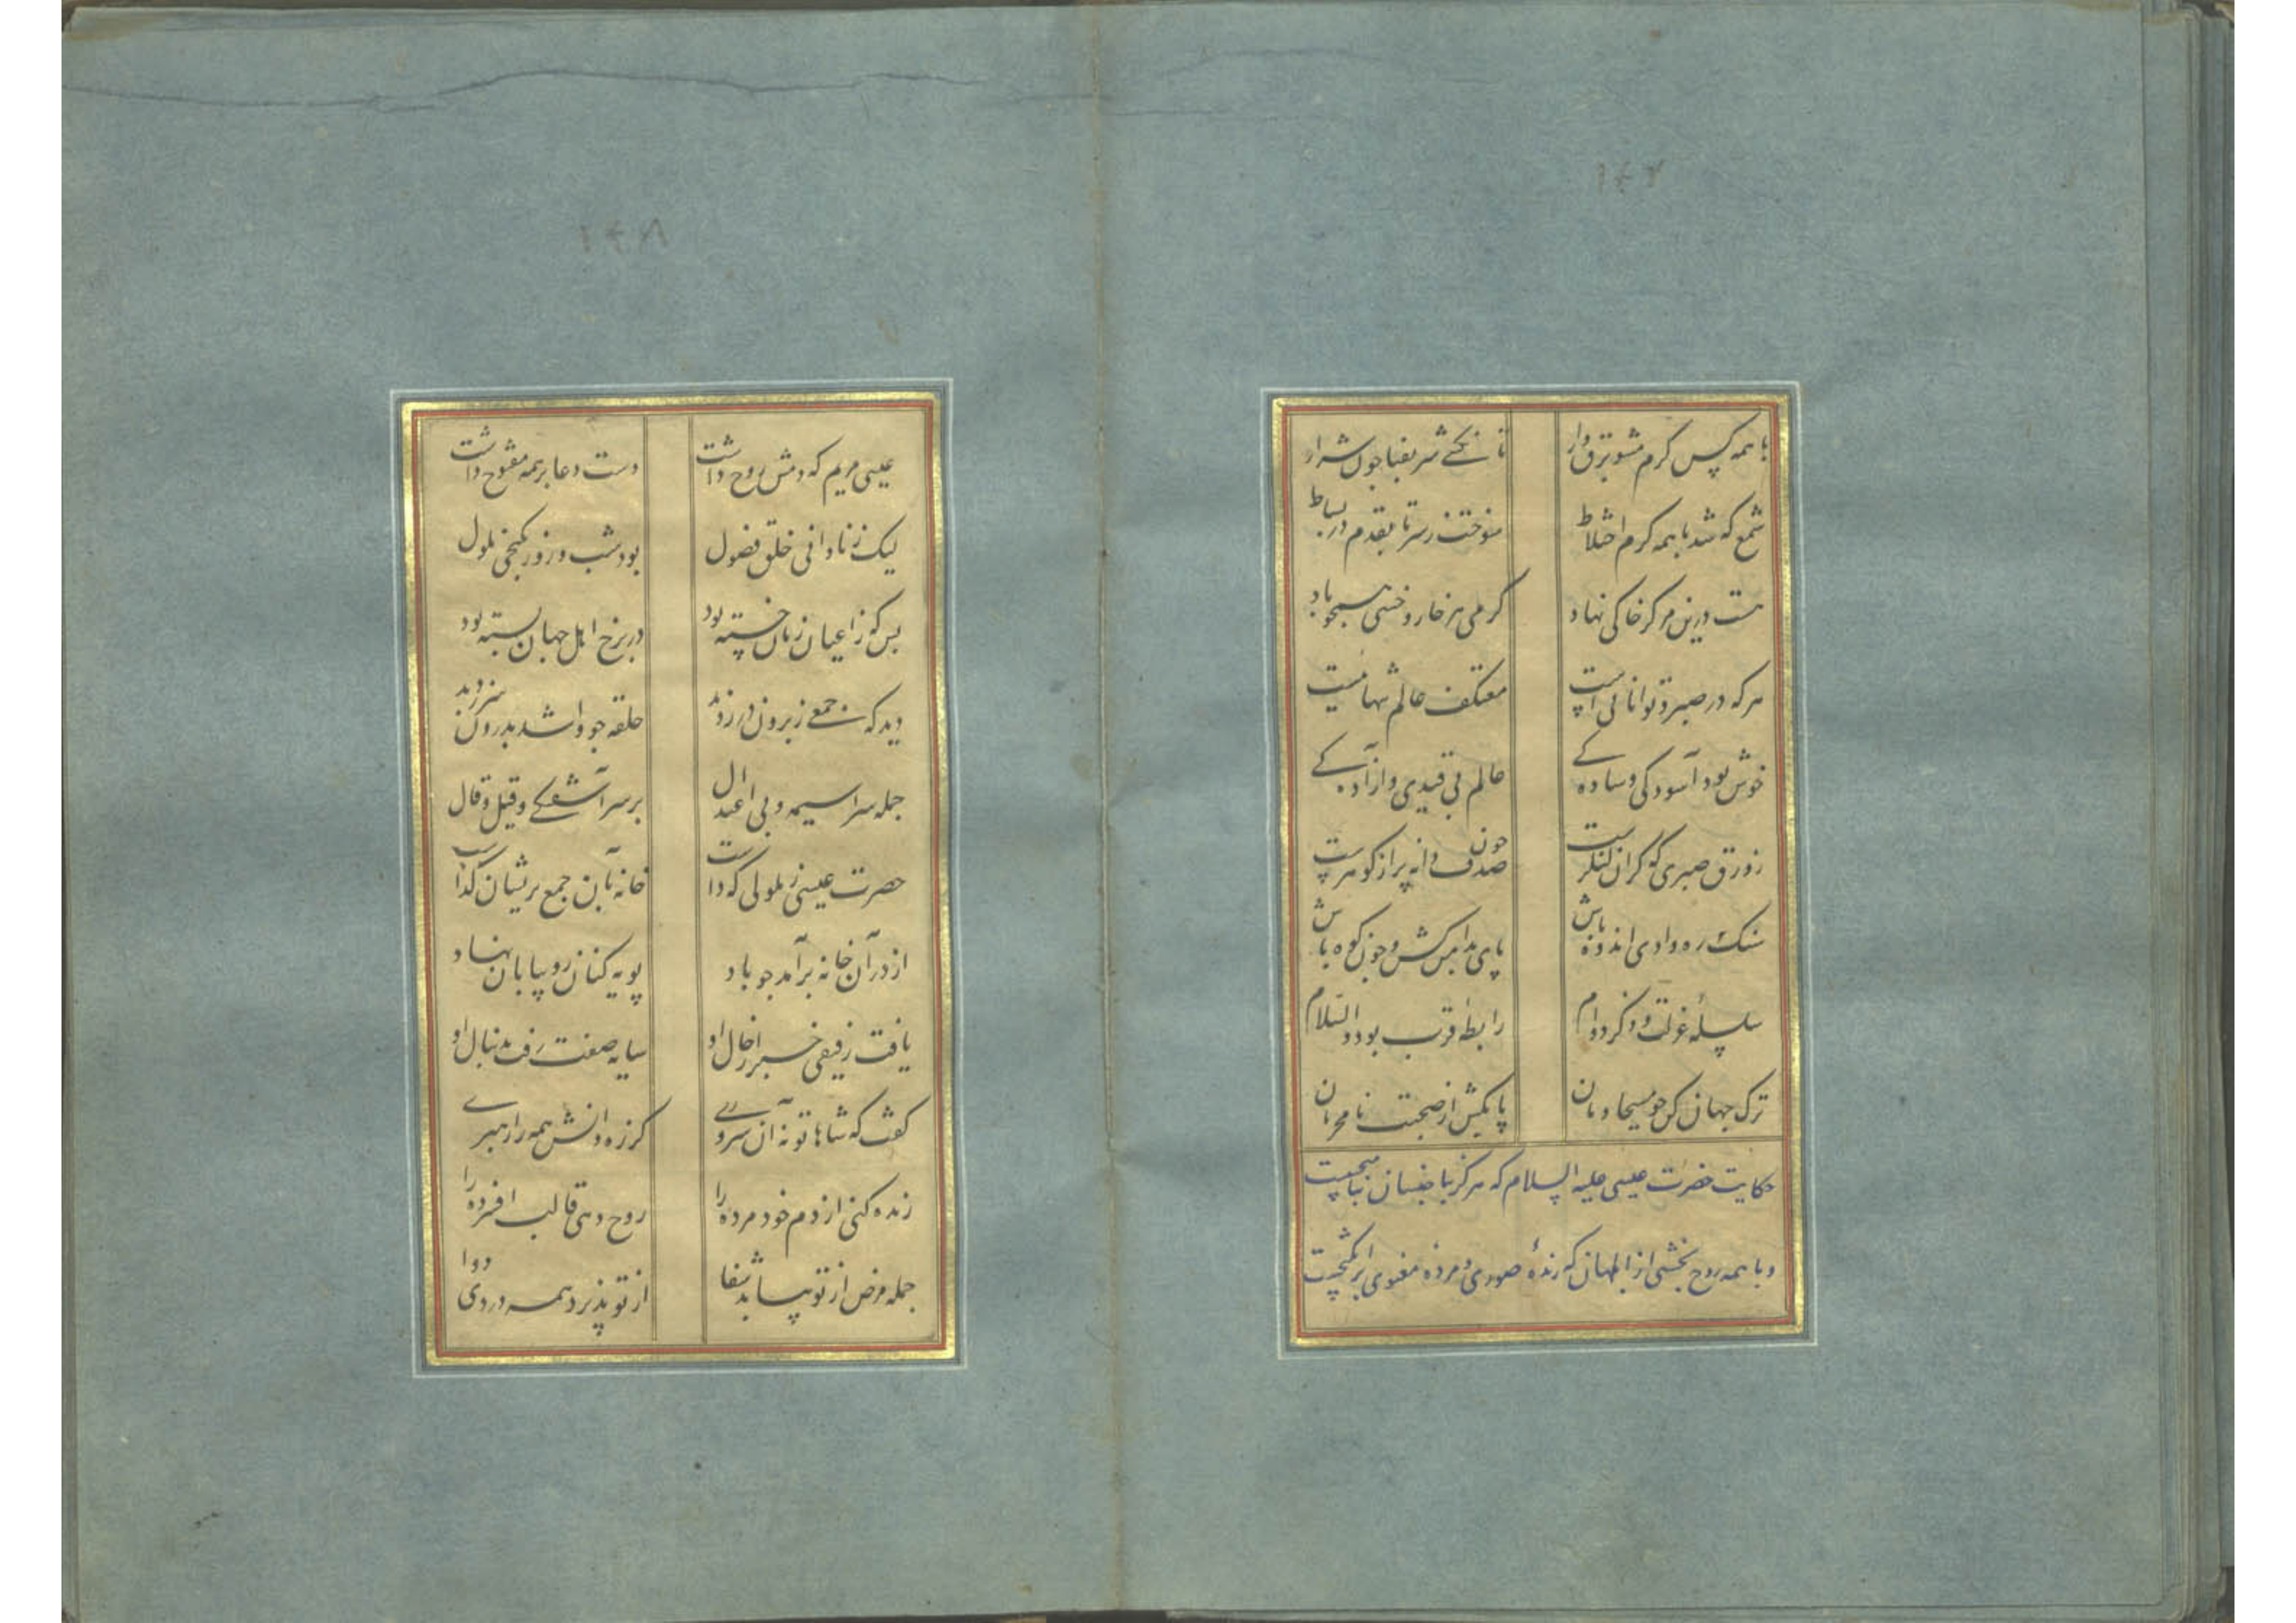 ۱۴۷
با همه کس گرم مشو برق وار
تا نکنی سر بفنا چون شرار
شمع که شد با همه گرم اختلاط
سوخت ز سر تا بقدم در بساط
هست درین مرکز خاکی نهاد
گرمی هر خار و خسی همچو باد
هر که در صبر و توانائی است
معتکف عالم تنهائیست
خوش بود آسودگی و سادگی
عالم بی قیدی و آزادگی
زورق صبری گو گران لنگرست
چون صدف دانه پر از گوهرست
سنک ره وادی اندوه باش
پای بدامن کش و چون کوه باش
سلسلهٔ عزلت و ذکر دوام
رابطه قرب بود والسلام
ترک جهان کن چو مسیحا دمان
پا بکش از صحبت نامحرمان
حکایت حضرت عیسی علیه السلام که هرگز با خسان نیامیخت
و با همه روح بخشی از ابلهان که زندهٔ صوری و مردهٔ معنوی اند گریخت
۱۴۸
عیسی مریم که دمش روح داشت
دست دعا بر همه مفتوح داشت
لیک ز نادانی خلق فضول
بود شب و روز بکنجی ملول
بس که ز اعیان زمان خسته بود
در برخ اهل جهان بسته بود
دید که جمعی ز برون در زدند
حلقه چو وا شد بدرون سر زدند
جمله سراسیمه و بی اعتدال
بر سر آشفتگی و قیل و قال
حضرت عیسی ز ملولی که داشت
خانه بآن جمع پریشان گذاشت
از در آن خانه برآمد چو باد
پویه کنان رو ببیابان نهاد
یافت رفیقی خبر از حال او
سایه صفت رفت بدنبال او
گفت که شاها تو نه آن سروری
کز ره دانش همه را رهبری
زنده کنی از دم خود مرده را
روح دهی قالب افسرده را
جمله مرض از تو بیابد شفا
از تو پذیرد همه دردی دوا